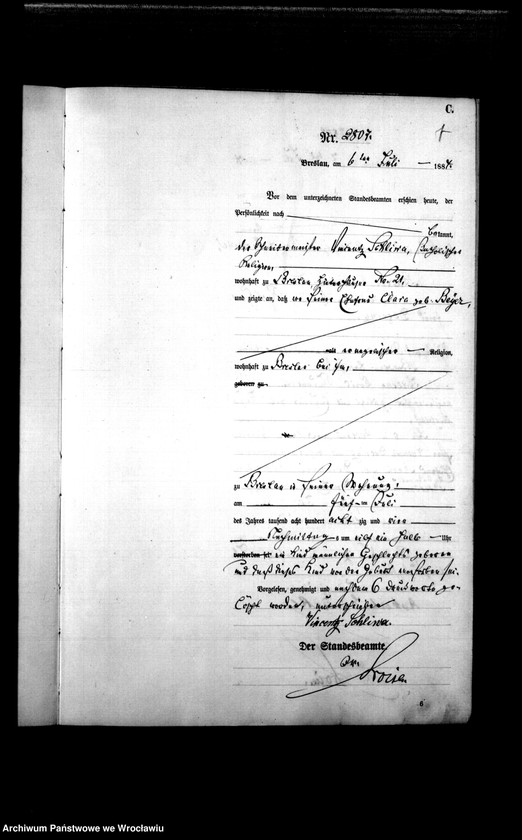 C.
Nr. 2807.
Breslau, am 6 ten Juli 1884.
Vor dem unterzeichneten Standesbeamten erschien heute, der
Persönlichkeit nach
bekannt,
der Schneidermeister Vincentz Schliwa, katholischer
Religion,
wohnhaft zu Breslau No. 21,
und zeigte an, daß von seiner Ehefrau Clara geb. Beyer,
evangelischer Religion,
wohnhaft zu Breslau bei ihm,
geboren zu
zu Breslau in seiner Wohnung,
am fünf ten Juli
des Jahres tausend acht hundert acht zig und vier
Nachmittag um ein halb Uhr
verstorben sei ein Kind männlichen Geschlechts geboren
und daß dieses Kind in der Geburt verstorben sei.
Vorgelesen, genehmigt und nachdem 6 Druckworte ge-
löscht worden, unterschrieben
Vincentz Schliwa.
Der Standesbeamte.
6
Archiwum Państwowe we Wrocławiu